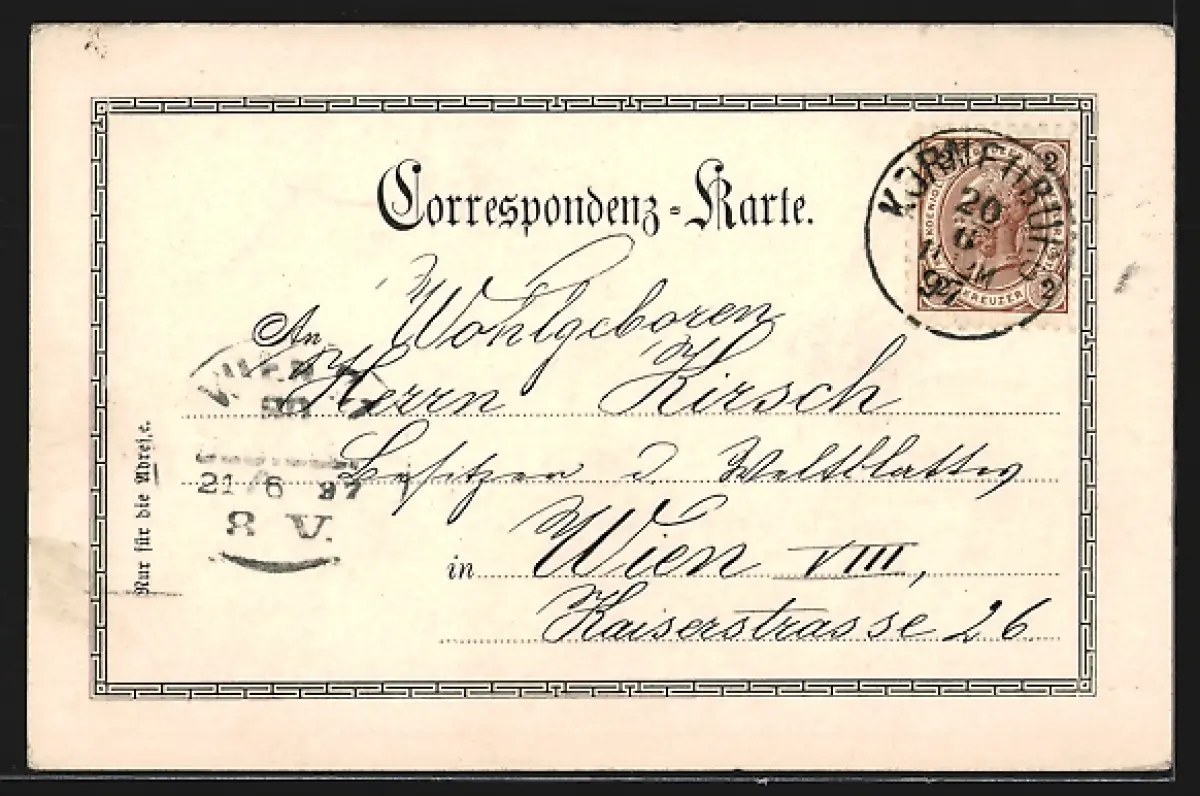 Correspondenz-Karte.
KORNEUBURG
20
6
97
2 2
KREUZER
2
An Wohlgeboren
Herrn Kirsch
Besitzer d. Weltblattes
in Wien VIII,
Kaiserstrasse 26
WIEN
21 6 97
8 V.
Nur für die Adresse.